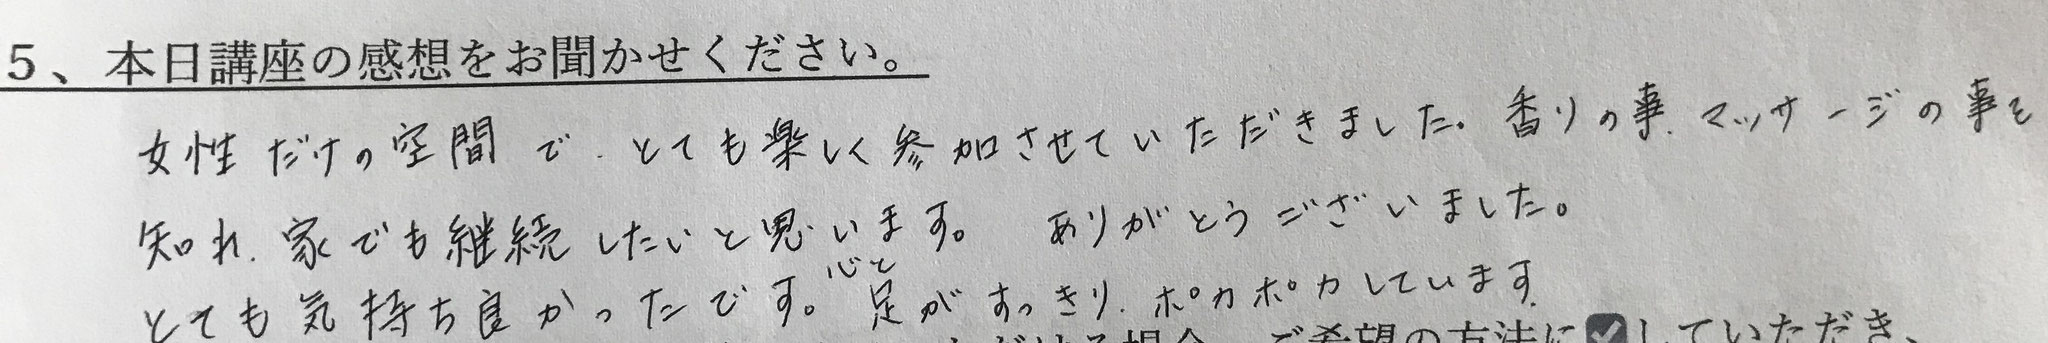 5、本日講座の感想をお聞かせください。
女性だけの空間で、とても楽しく参加させていただきました。香りの事、マッサージの事を
知れ、家でも継続したいと思います。ありがとうございました。
とても気持ち良かったです。心と足がすっきり、ポカポカしています。
ご希望の方法に☑していただき、